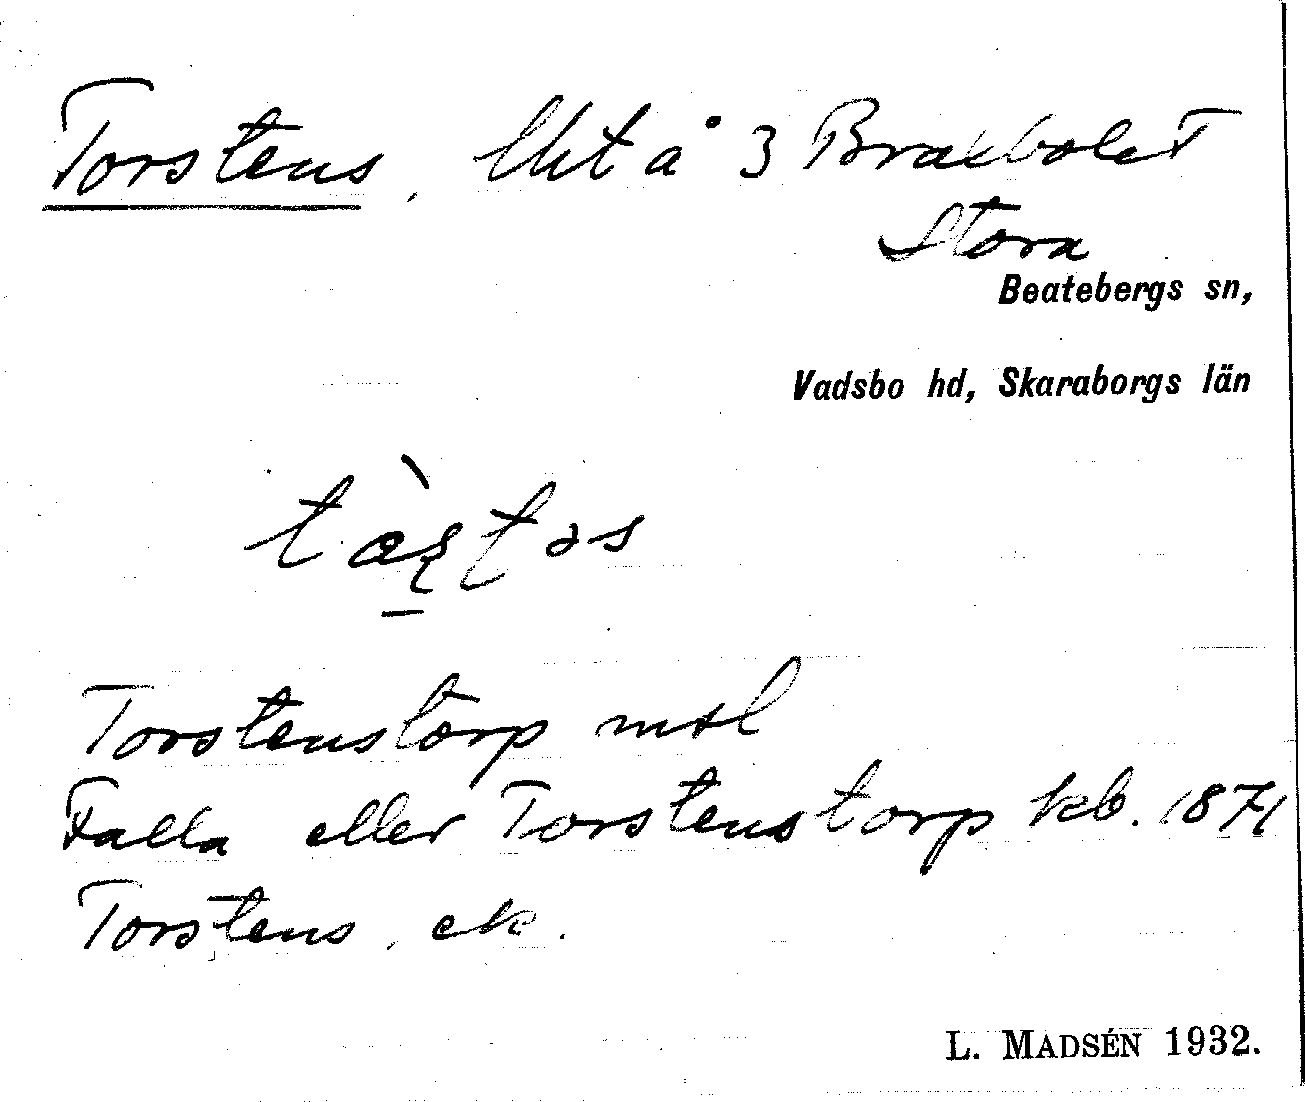 Torstens, lht å 3 Braxbolet
Stora
Beatebergs sn,
Vadsbo hd, Skaraborgs län
Torstenstorp msl
Falla eller Torstenstorp kb. 1871
Torstens, ek.
L. MADSÉN 1932.